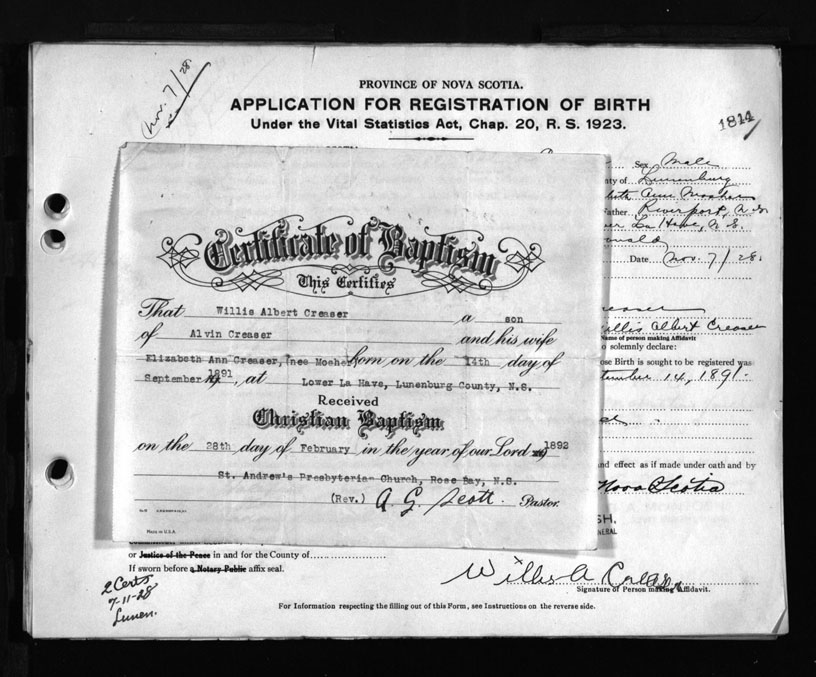 Nov. 7/28.
PROVINCE OF NOVA SCOTIA.
APPLICATION FOR REGISTRATION OF BIRTH
Under the Vital Statistics Act, Chap. 20, R. S. 1923.
1814
Sex Male
ty of Lunenburg
beth Ann Mosher
Father Riverport, N.S.
er La Have, N.S.
onald
Date Nov. 7/28.
reaser
Willis Albert Creaser
Name of person making Affidavit
o solemnly declare:
ose Birth is sought to be registered was
tember 14, 1891.
nd effect as if made under oath and by
Nova Scotia
SH.
GENERAL
Certificate of Baptism
This Certifies
That Willis Albert Creaser a son
of Alvin Creaser and his wife
Elizabeth Ann Creaser, (nee Mosher) born on the 14th day of
September 1891, at Lower La Have, Lunenburg County, N.S.
Received
Christian Baptism
on the 28th day of February in the year of our Lord 1892
St. Andrew's Presbyterian Church, Rose Bay, N.S.
(Rev.) A. G. Scott. Pastor.
Made in U.S.A.
or Justice of the Peace in and for the County of
If sworn before a Notary Public affix seal.
2 Certs
7-11-28
Lunen.
Willis A
Signature of Person making Affidavit.
For Information respecting the filling out of this Form, see Instructions on the reverse side.